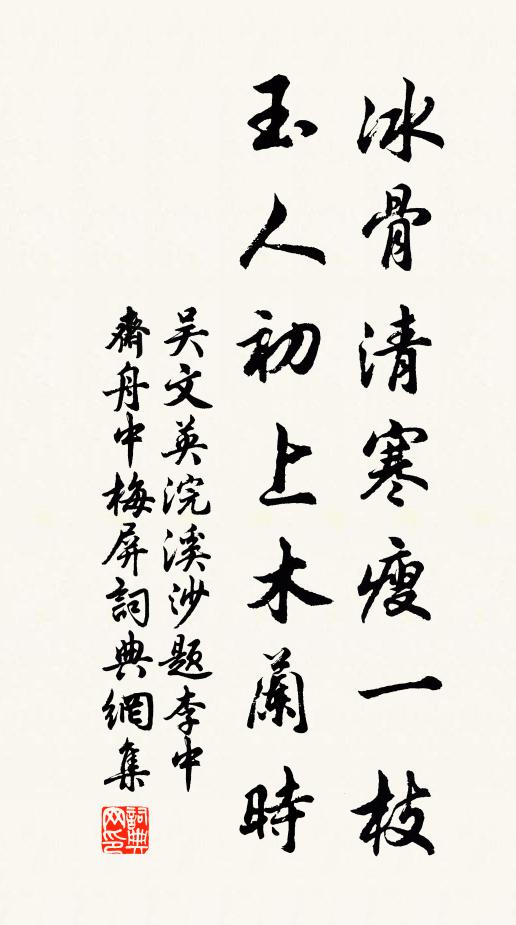 冰骨清寒瘦一枝
玉人初上木蘭時
吴文英浣溪沙题李中
齋舟中梅屏詞典網集
詞典
网印